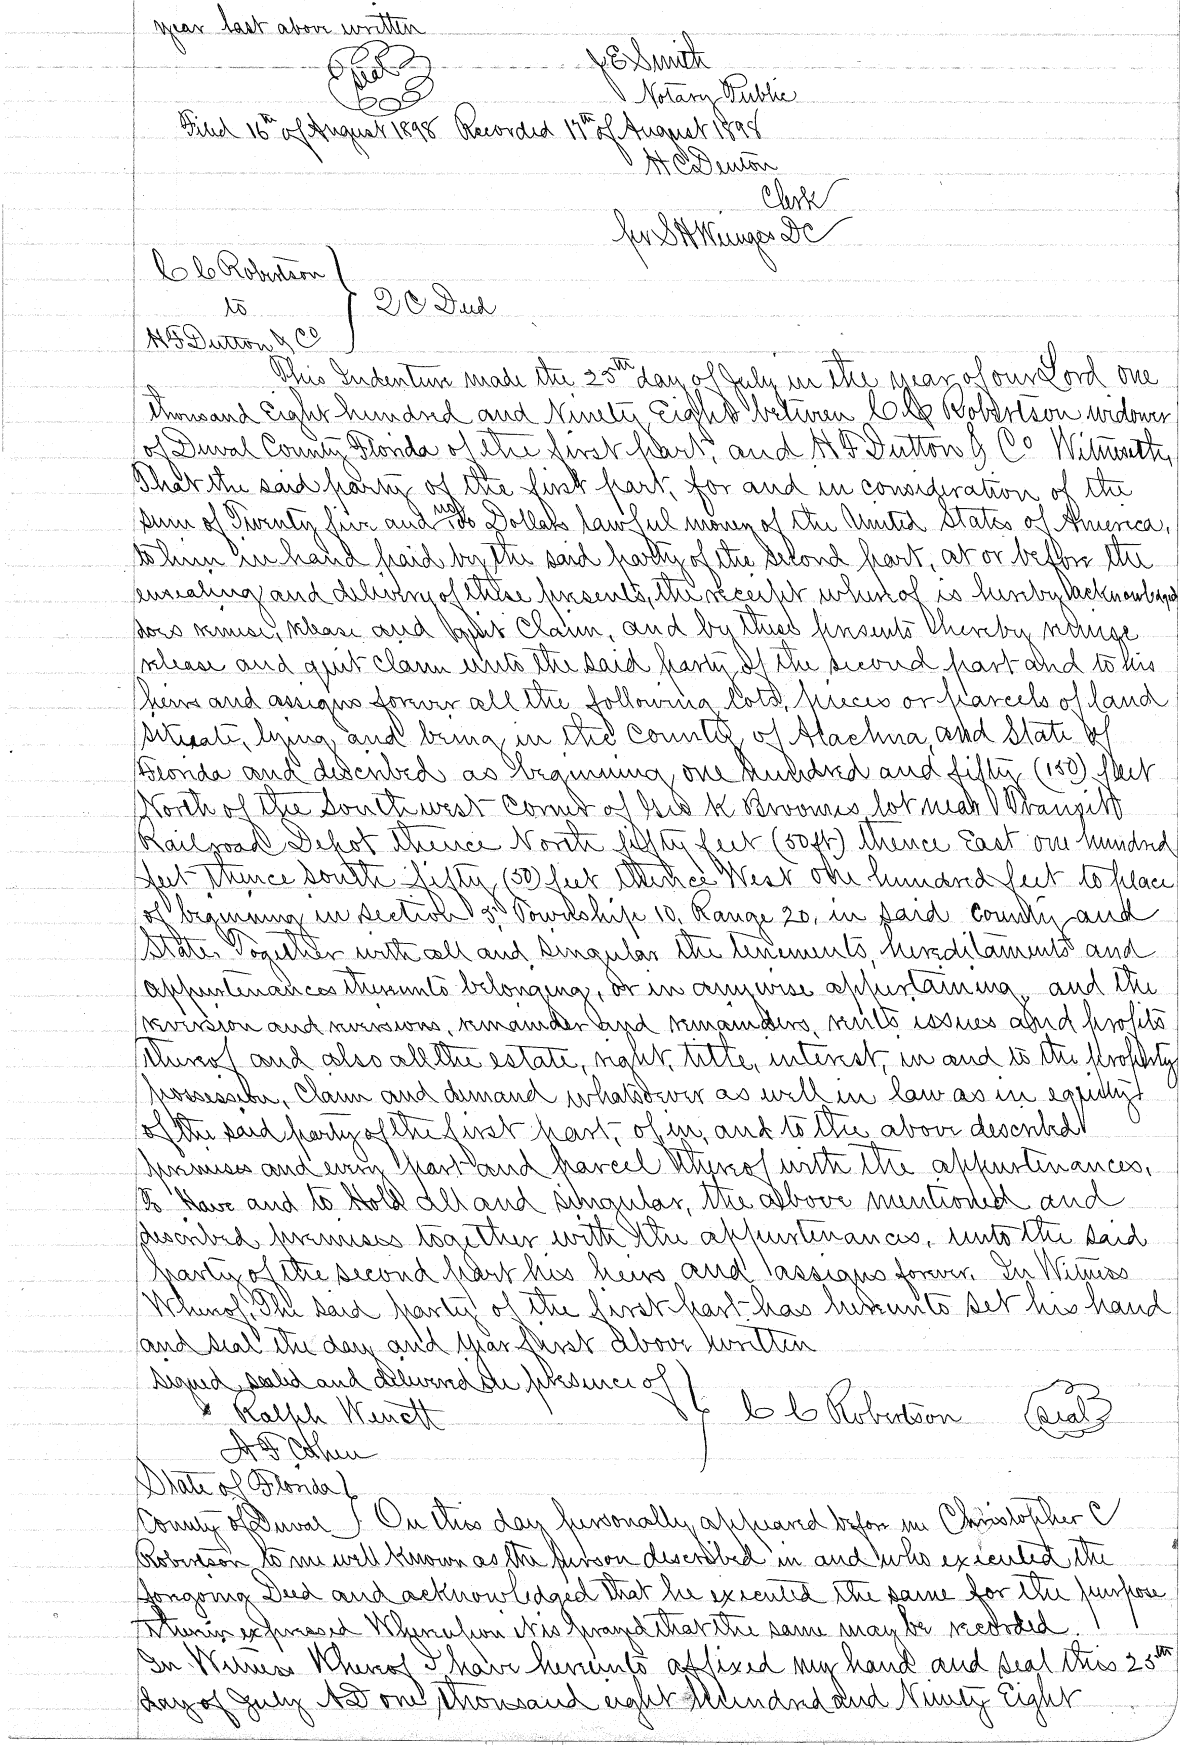 year last above written
Seal J E Smith
Notary Public
Filed 16th of August 1898 Recorded 17th of August 1898
H C Denton
Clerk
per S H Wienges DC
C C Robertson
to } 2 C Deed
H F Dutton & Co
This Indenture made the 25th day of July in the year of our Lord one
thousand Eight hundred and Ninety Eight between C C Robertson widower
of Duval County Florida of the first part, and H F Dutton & Co Witnesseth,
That the said party of the first part, for and in consideration of the
sum of Twenty five and no/100 Dollars lawful money of the United States of America,
to him in hand paid by the said party of the second part, at or before the
ensealing and delivery of these presents, the receipt whereof is hereby acknowledged
does remise, release and quit Claim, and by these presents hereby
release and quit claim unto the said party of the second part and to his
heirs and assigns forever all the following lots, pieces or parcels of land
situate, lying and being in the County of Alachua and State of
Florida and described as beginning one hundred and fifty (150) feet
North of the Southwest Corner of Geo K Broomes lot near Transit
Railroad Depot thence North fifty feet (50ft) thence East one hundred
feet thence South fifty (50) feet thence West one hundred feet to place
of beginning in section 5, Township 10, Range 20, in said county and
State, Together with all and singular the tenements, hereditaments and
appurtenances thereunto belonging, or in anywise appertaining, and the
reversion and reversions, remainder and remainders, rents issues and profits
thereof and also all the estate, right, title, interest, in and to the property
possession, Claim and demand whatsoever as well in law as in equity
of the said party of the first part, of in, and to the above described
premises and every part and parcel thereof with the appurtenances,
To Have and to Hold all and singular, the above mentioned and
described premises together with the appurtenances, unto the said
party of the second part his heirs and assigns forever. In Witness
Whereof, The said party of the first part has hereunto set his hand
and seal the day and year first above written
Signed sealed and delivered in presence of
Ralph C C Robertson Seal
H F Cohen
State of Florida
County of Duval } On this day personally appeared before me Christopher C
Robertson to me well known as the person described in and who executed the
foregoing Deed and acknowledged that he executed the same for the purpose
therein expressed Whereupon it is prayed that the same may be recorded.
In Witness Whereof I have hereunto affixed my hand and seal this 25th
day of July AD one thousand eight Hundred and Ninety Eight